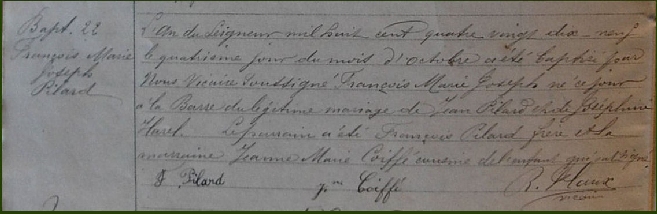 Bapt. 22
François Marie
Joseph
Pilard
L'An du Seigneur mil huit cent quatre vingt dix-neuf
le quatrième jour du mois d'Octobre a été baptisé par
Nous Vicaire Soussigné François Marie Joseph né ce jour
à la Barre du légitime mariage de Jean Pilard et de Joséphine
Harel. Le parrain a été François Pilard frère et la
marraine Jeanne Marie Coiffé cousine de l'enfant qui ont signé.
F Pilard
Coiffé
R.
vicaire